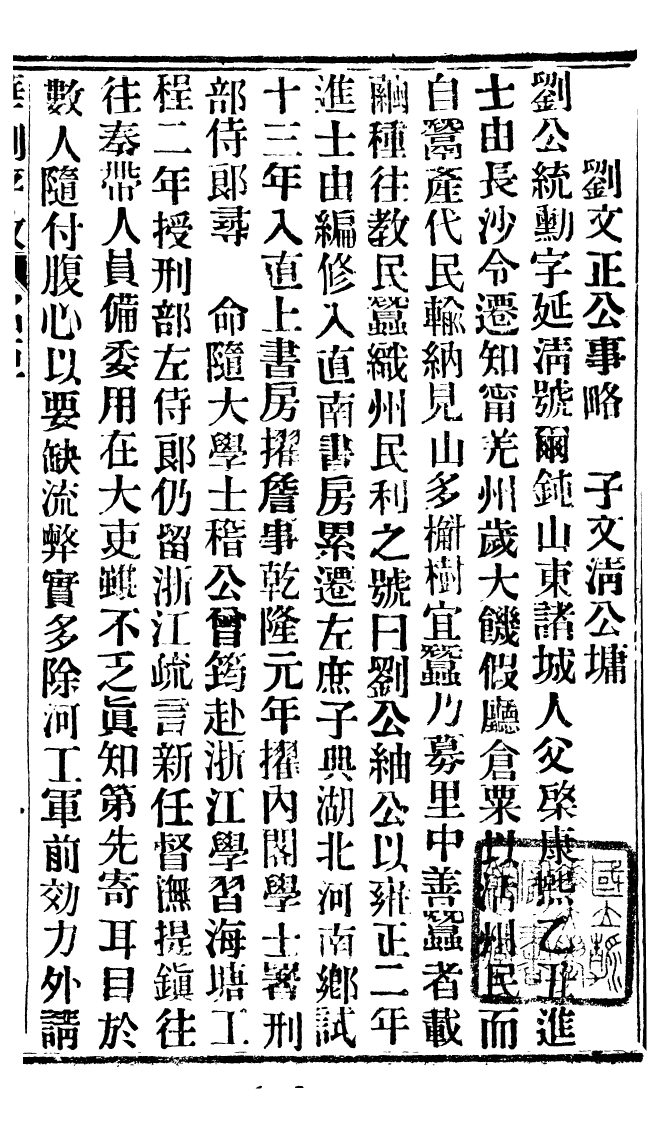 劉文正公事略　子文淸公墉
劉公統勳字延淸號爾鈍山東諸城人父棨康熙乙丑進
士由長沙令遷知甯羌州歲大饑假廳倉粟以活州民而
自鬻產代民輸納見山多槲樹宜蠶乃募里中善蠶者載
繭種往敎民蠶織州民利之號曰劉公紬公以雍正二年
進士由編修入直南書房累遷左庶子典湖北河南鄉試
十三年入直上書房擢詹事乾隆元年擢內閣學士署刑
部侍郎尋　命隨大學士稽公曾筠赴浙江學習海塘工
程二年授刑部左侍郎仍留浙江疏言新任督撫提鎭往
往奏帶人員備委用在大吏雖不乏眞知第先寄耳目於
數人隨付腹心以要缺流弊實多除河工軍前効力外請
名臣